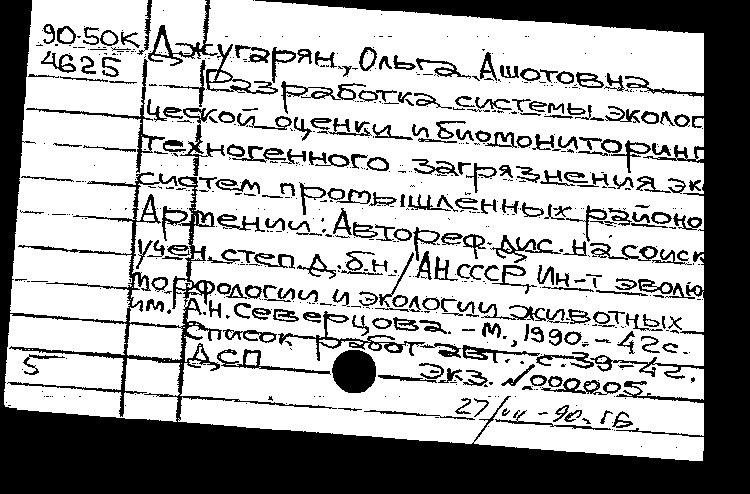 90-50К Джугарян, Ольга Ашотовна
4625 Разработка системы эколог
ческой оценки и биомониторинг
техногенного загрязнения эк
систем промышленных районо
Армении: Автореф. дис. на соиск
учен. степ. д.б.н. / АН СССР, Ин-т эволю
морфологии и экологии животных
им. А.Н. Северцова. - М., 1990. - 42с.
Список работ авт.: с. 39-42.
5 ДСП Экз. №000005.
27/VII-90. ГБ.